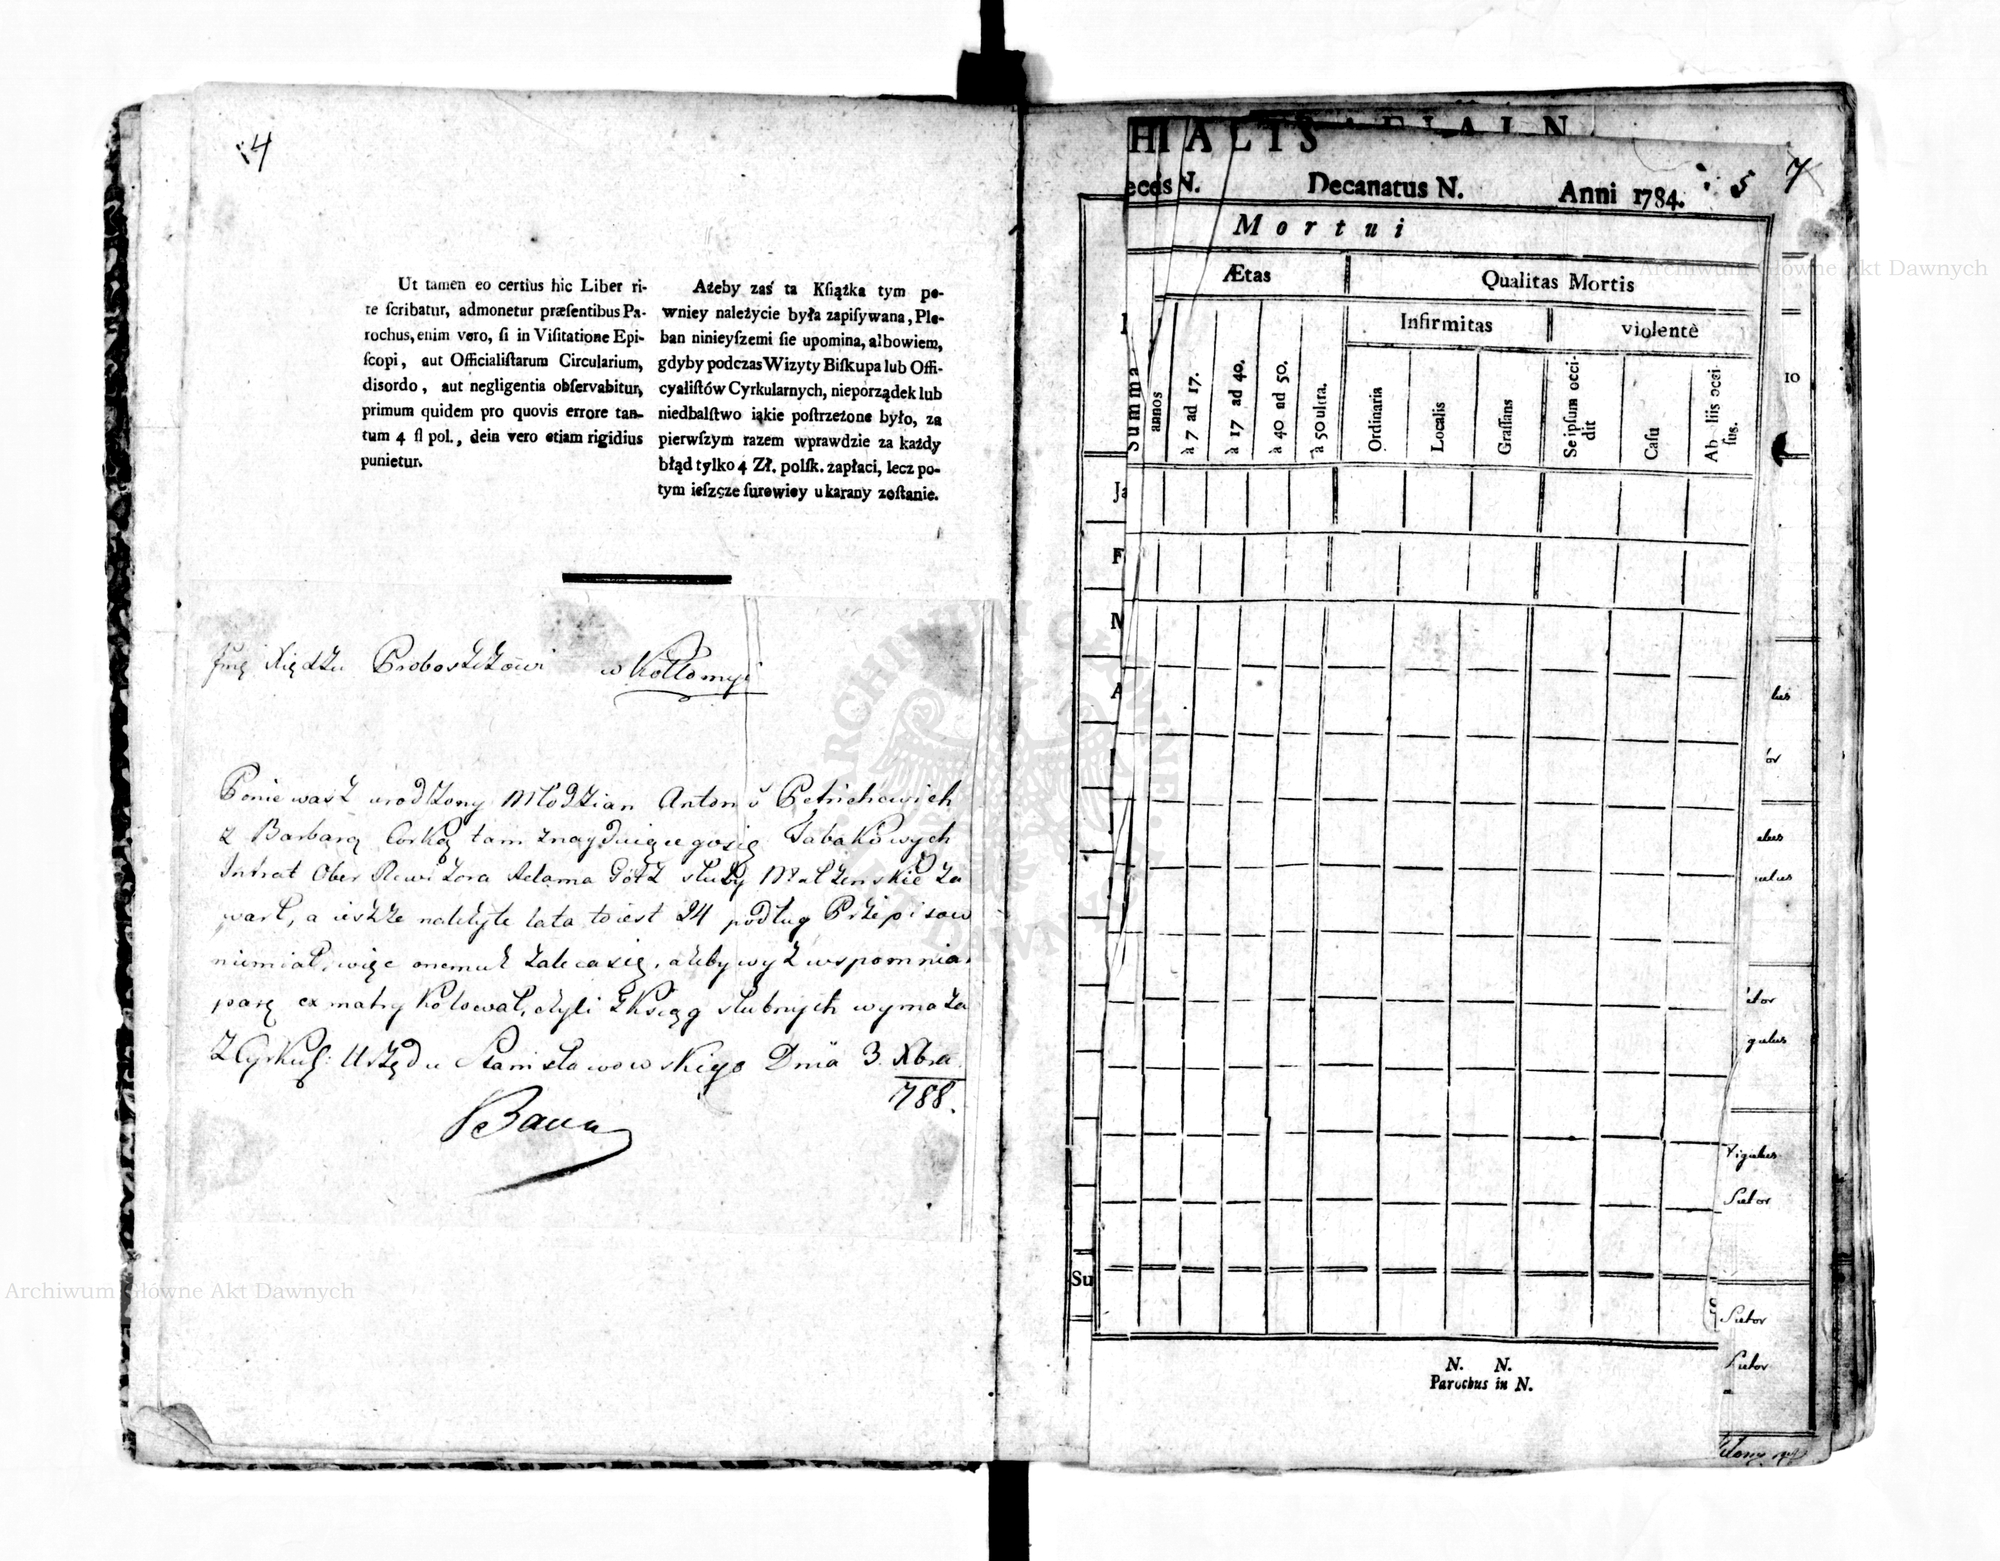 4
Ut tamen eo certius hic Liber ri-
te ſcribatur, admonetur præſentibus Pa-
rochus, enim vero, ſi in Viſitatione Epi-
ſcopi, aut Officialiſtarum Circularium,
disordo, aut negligentia obſervabitur,
primum quidem pro quovis errore tan-
tum 4 fl pol., dein vero etiam rigidius
punietur.
Ażeby zaś ta Kſiążka tym pe-
wniey należycie była zapiſywana, Ple-
ban ninieyſzemi ſie upomina, albowiem,
gdyby podczas Wizyty Biſkupa lub Offi-
cyaliſtów Cyrkularnych, nieporządek lub
niedbalſtwo iąkie poſtrzeżone było, za
pierwſzym razem wprawdzie za każdy
błąd tylko 4 Zł. polſk. zapłaci, lecz po-
tym ieſzcze ſurowiey ukarany zoſtanie.
Jmę Xiędzu Proboszczowi w Kołłomyi
Poniewasz urodzony Młodzian Antoni Petrichewich
z Barbarą Corką tam znayduiącegosię Tabakowych
Intrat Ober Rewizora Adama Götz sluby Malzenskie za
warł, a ieszcze nalezyte lata to iest 24 podług Przepisow
niemiał, więc onemuz zaleca się, azeby wyz wspomnia
parę ex matry kolował, czyli z Ksiąg slubnych wymaza
Z Cyrkuł: Urzędu Stanisławowskiego Dnia 3. Xbra
788.
HIALIS
eceds N. Decanatus N. Anni 1784. 5 7
Mortui
Ætas Qualitas Mortis
Infirmitas violentè
Summa
annos
à 7 ad 17.
à 17 ad 40.
à 40 ad 50.
à 50 ultra.
Ordinaria
Localis
Graſſans
Se ipſum occi-
dit
Caſu
Ab aliis occi-
ſus.
10
Ja
F
M
A
Su
lus
tor
gulus
Figulus
Sutor
Sutor
Sutor
N. N.
Parochus in N.
Archiwum Główne Akt Dawnych
Archiwum Główne Akt Dawnych
ARCHIWUM GŁÓWNE AKT DAWNYCH